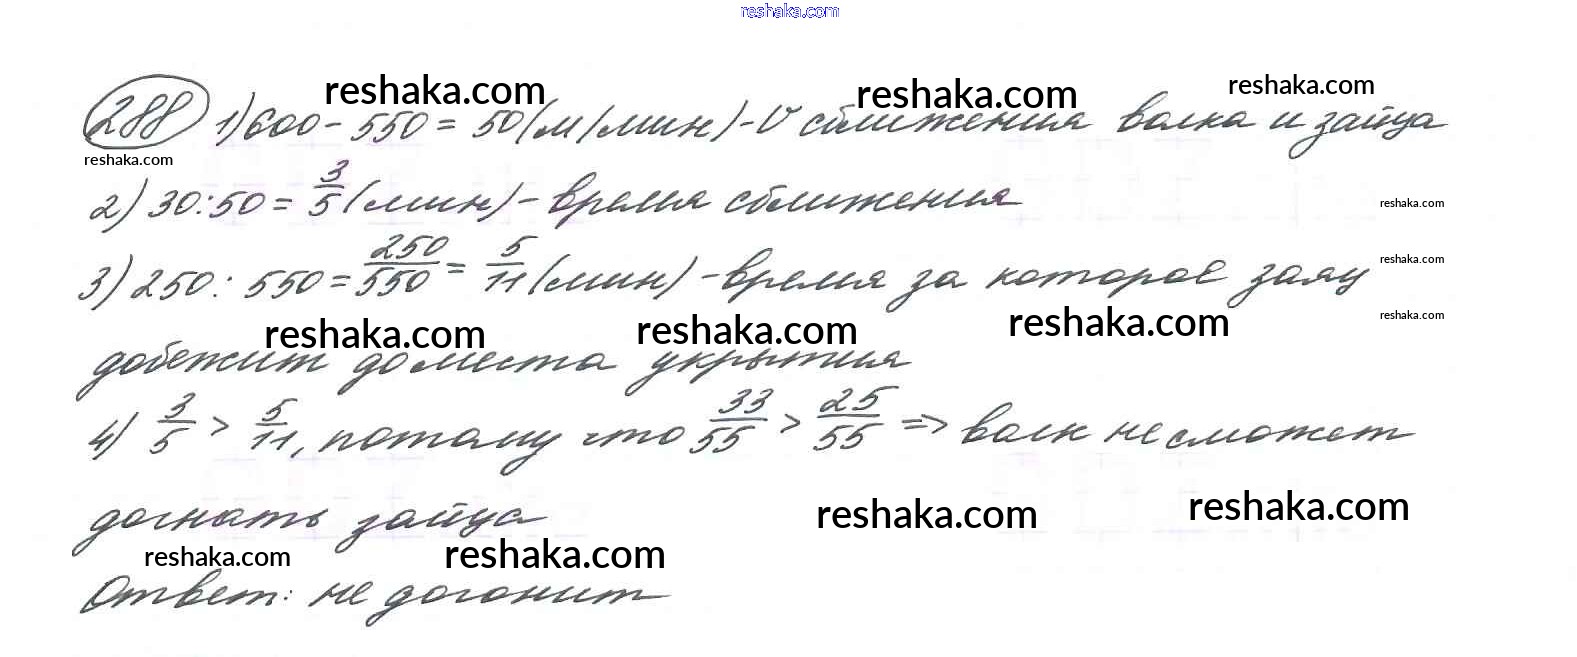 reshaka.com
288 1) 600 - 550 = 50 (м/мин) - V сближения волка и зайца
reshaka.com reshaka.com reshaka.com
reshaka.com
2) 30 : 50 = 3/5 (мин) - время сближения
reshaka.com
3) 250 : 550 = 250/550 = 5/11 (мин) - время за которое заяц
reshaka.com
reshaka.com reshaka.com reshaka.com reshaka.com
добежит до места укрытия
4) 3/5 > 5/11, потому что 33/55 > 25/55 => волк не сможет
reshaka.com reshaka.com
догнать зайца
reshaka.com reshaka.com
Ответ: не догонит